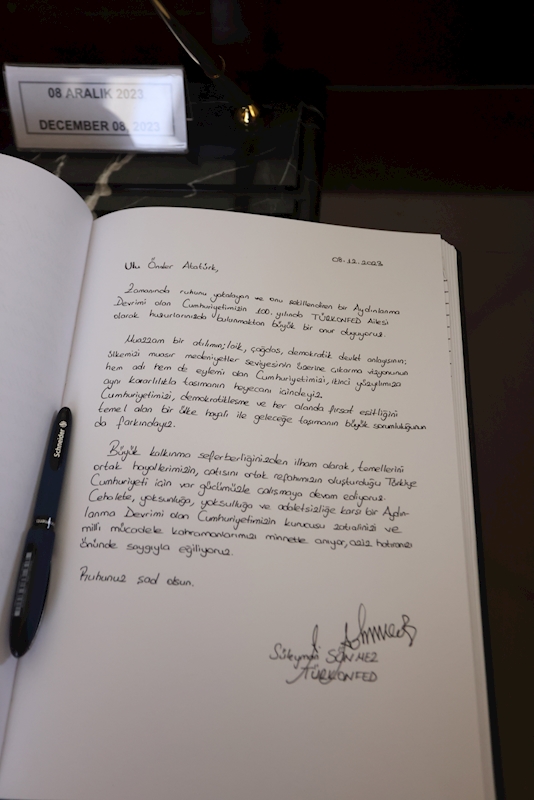 08 ARALIK 2023
DECEMBER 08, 2023
08.12.2023
Ulu Önder Atatürk,
Zamanında ruhunu yakalayan ve onu şekillendiren bir Aydınlanma
Devrimi olan Cumhuriyetimizin 100. yılında TÜRKONFED Ailesi
olarak huzurlarınızda bulunmaktan büyük bir onur duyuyoruz.
Muazzam bir atılımın; laik, çağdaş, demokratik devlet anlayışının;
ülkemizi muasır medeniyetler seviyesinin üzerine çıkarma vizyonunun
hem adı hem de eylemi olan Cumhuriyetimizi, ikinci yüzyılımıza
aynı kararlılıkla taşımanın heyecanı içindeyiz.
Cumhuriyetimizi, demokratikleşme ve her alanda fırsat eşitliğini
temel alan bir ülke hayali ile geleceğe taşımanın büyük sorumluluğunun
da farkındayız.
Büyük kalkınma seferberliğinizden ilham olarak, temellerini
ortak hayallerimizin, çatısını ortak refahımızın oluşturduğu Türkiye
Cumhuriyeti için var gücümüzle çalışmaya devam ediyoruz.
Cehalete, yoksunluğa, yoksulluğa ve adaletsizliğe karşı bir Aydın-
lanma Devrimi olan Cumhuriyetimizin kurucusu zatıalinizi ve
milli mücadele kahramanlarımızı minnetle anıyor, aziz hatıranız
önünde saygıyla eğiliyoruz.
Ruhunuz şad olsun.
Süleyman SÖNMEZ
TÜRKONFED
Schneider